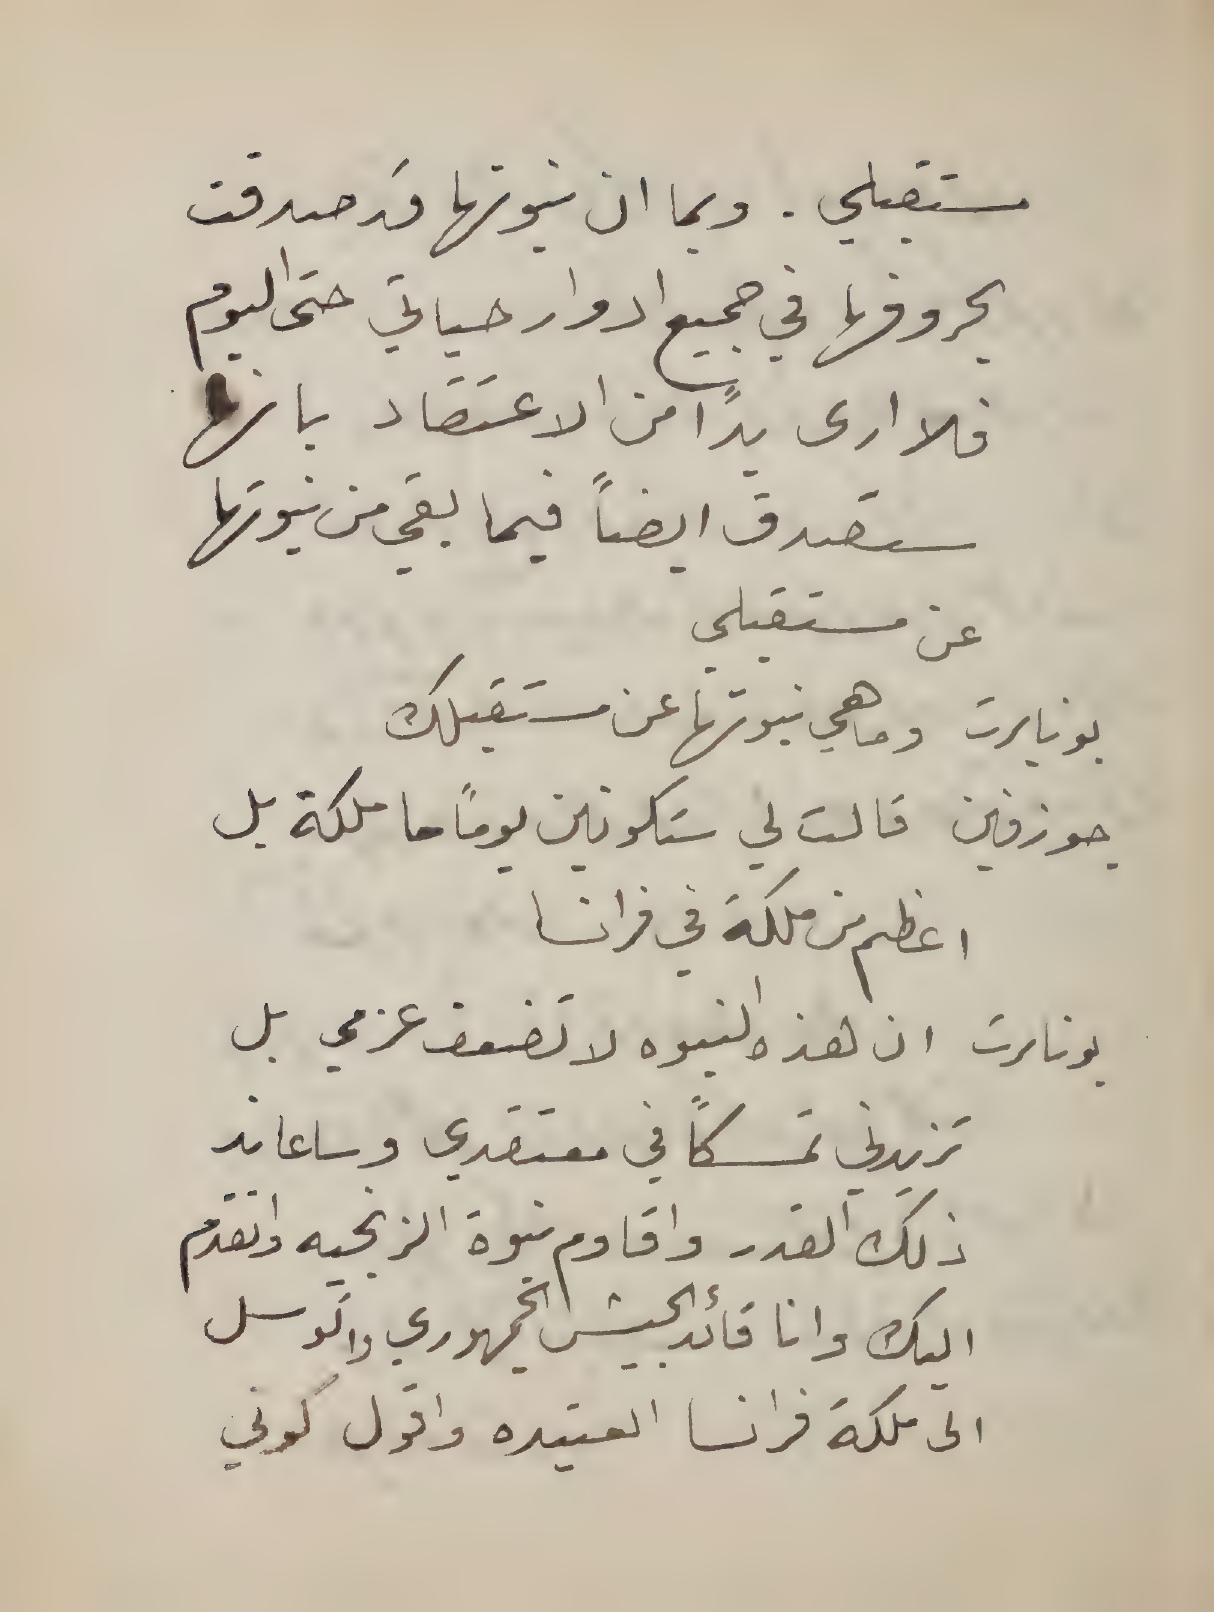 مستقبلي . وبما ان نبوتها قد صدقت
بحروفها في جميع ادوار حياتي حتى اليوم
فلا ارى بدًا من الاعتقاد بانها
ستصدق ايضاً فيما بقي من نبوتها
عن مستقبلي
بونابرت وما هي نبوتها عن مستقبلك
جوزفين قالت لي ستكونين يوماً ما ملكة بل
اعظم من ملكة في فرانسا
بونابرت ان هذه النبوه لا تضعف عزمي بل
تزيدني تمسكاً في معتقدي وساعاند
ذلك القدر واقاوم نبوة الزنجيه واتقدم
اليك وانا قائد الجيش الجمهوري واتوسل
الى ملكة فرانسا العتيده واقول كوني